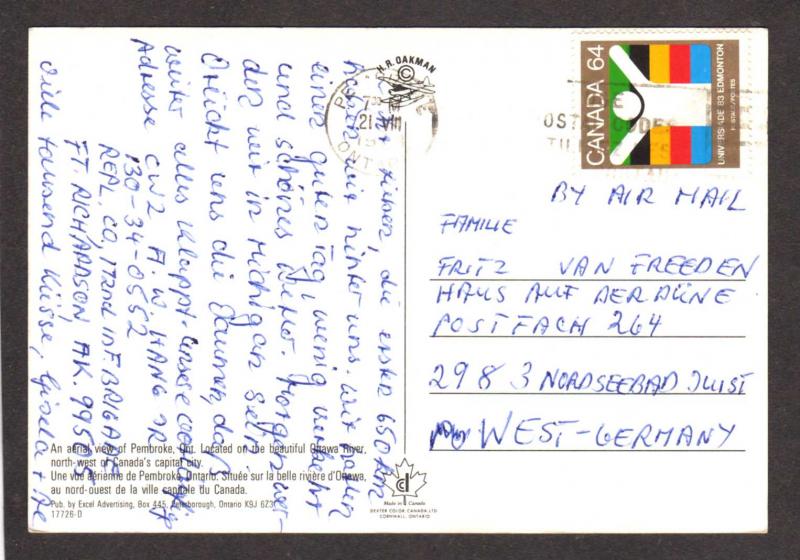 H.R. OAKMAN
21 VIII
ONT
CANADA 64
UNIVERSIADE 83 EDMONTON
POSTAGE/POSTES
BY AIR MAIL
FAMILIE
FRITZ VAN FREEDEN
HAUS AUF DER DÜNE
POSTFACH 264
2983 NORDSEEBAD JUIST
WEST-GERMANY
die ersten 650 km
haben wir hinter uns. Wir hatten
einen guten Tag, wenig Verkehr
und schönes Wetter. Morgen wer-
den wir in Michigan sein.
Drückt uns die Daumen, daß
weiter alles klappt. Unsere
Adresse CW2 A.W. HANG JR
130-34-0552
REPL. CO, 172nd INF. BRIGADE
FT. RICHARDSON AK. 99505
Viele tausend Küsse, Gisela +
An aerial view of Pembroke, Ont. Located on the beautiful Ottawa River,
north-west of Canada's capital city.
Une vue aérienne de Pembroke, Ontario. Située sur la belle rivière d'Ottawa,
au nord-ouest de la ville capitale du Canada.
Pub. by Excel Advertising, Box 445, Peterborough, Ontario K9J 6Z3
17726-D
Made in Canada
DEXTER COLOR CANADA LTD
CORNWALL, ONTARIO